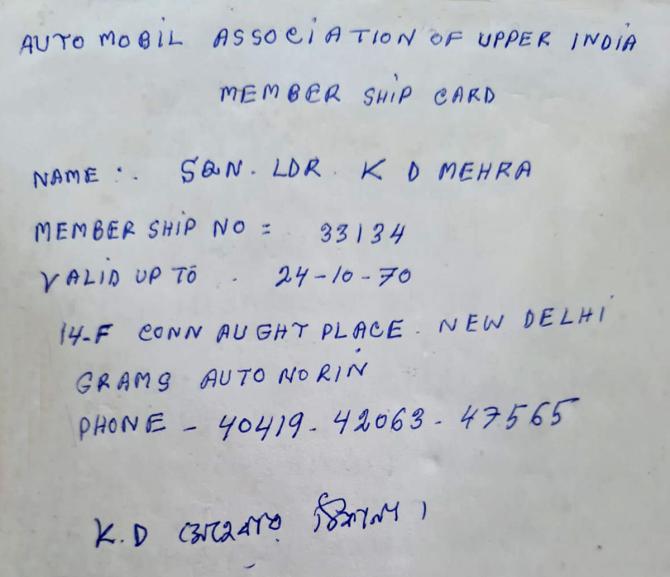 AUTO MOBIL ASSOCIATION OF UPPER INDIA
MEMBER SHIP CARD
NAME :. SQN. LDR. K D MEHRA
MEMBER SHIP NO = 33134
VALID UP TO . 24-10-70
14-F CONN AUGHT PLACE. NEW DELHI
GRAMS AUTO NORIN
PHONE - 40419-42063-47565
K.D মেহেরার ঠিকানা।